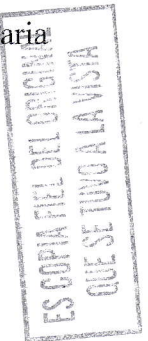 aria
ES COPIA FIEL DEL ORIGINAL
QUE SE TUVO A LA VISTA